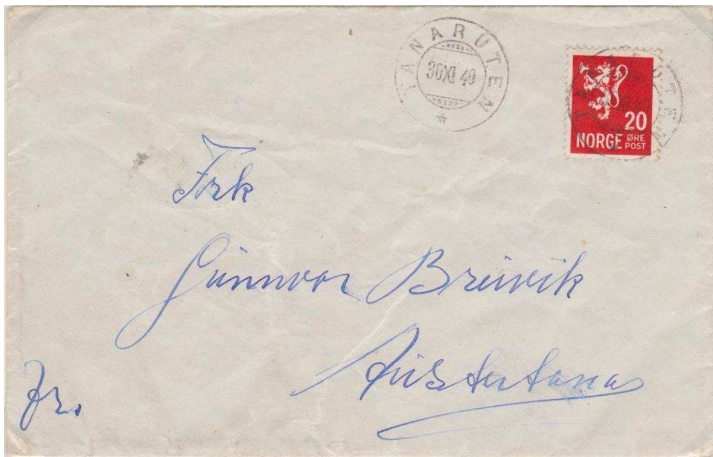 TANARUTEN
30 XI 40
20
NORGE ØRE POST
Frk
Gunnvor Breivik
Austertana
Fr.